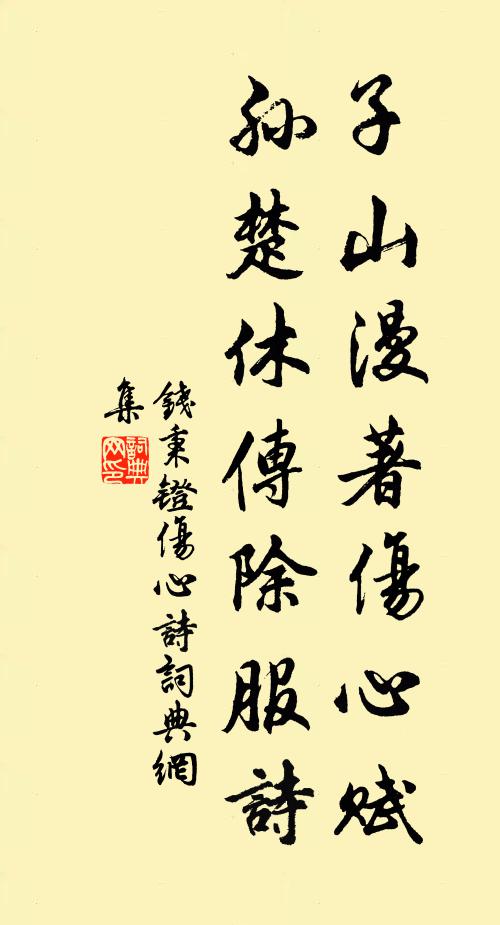 子山漫著傷心賦
孫楚休傳除服詩
錢秉鐙傷心詩詞典網
集
詞典网印